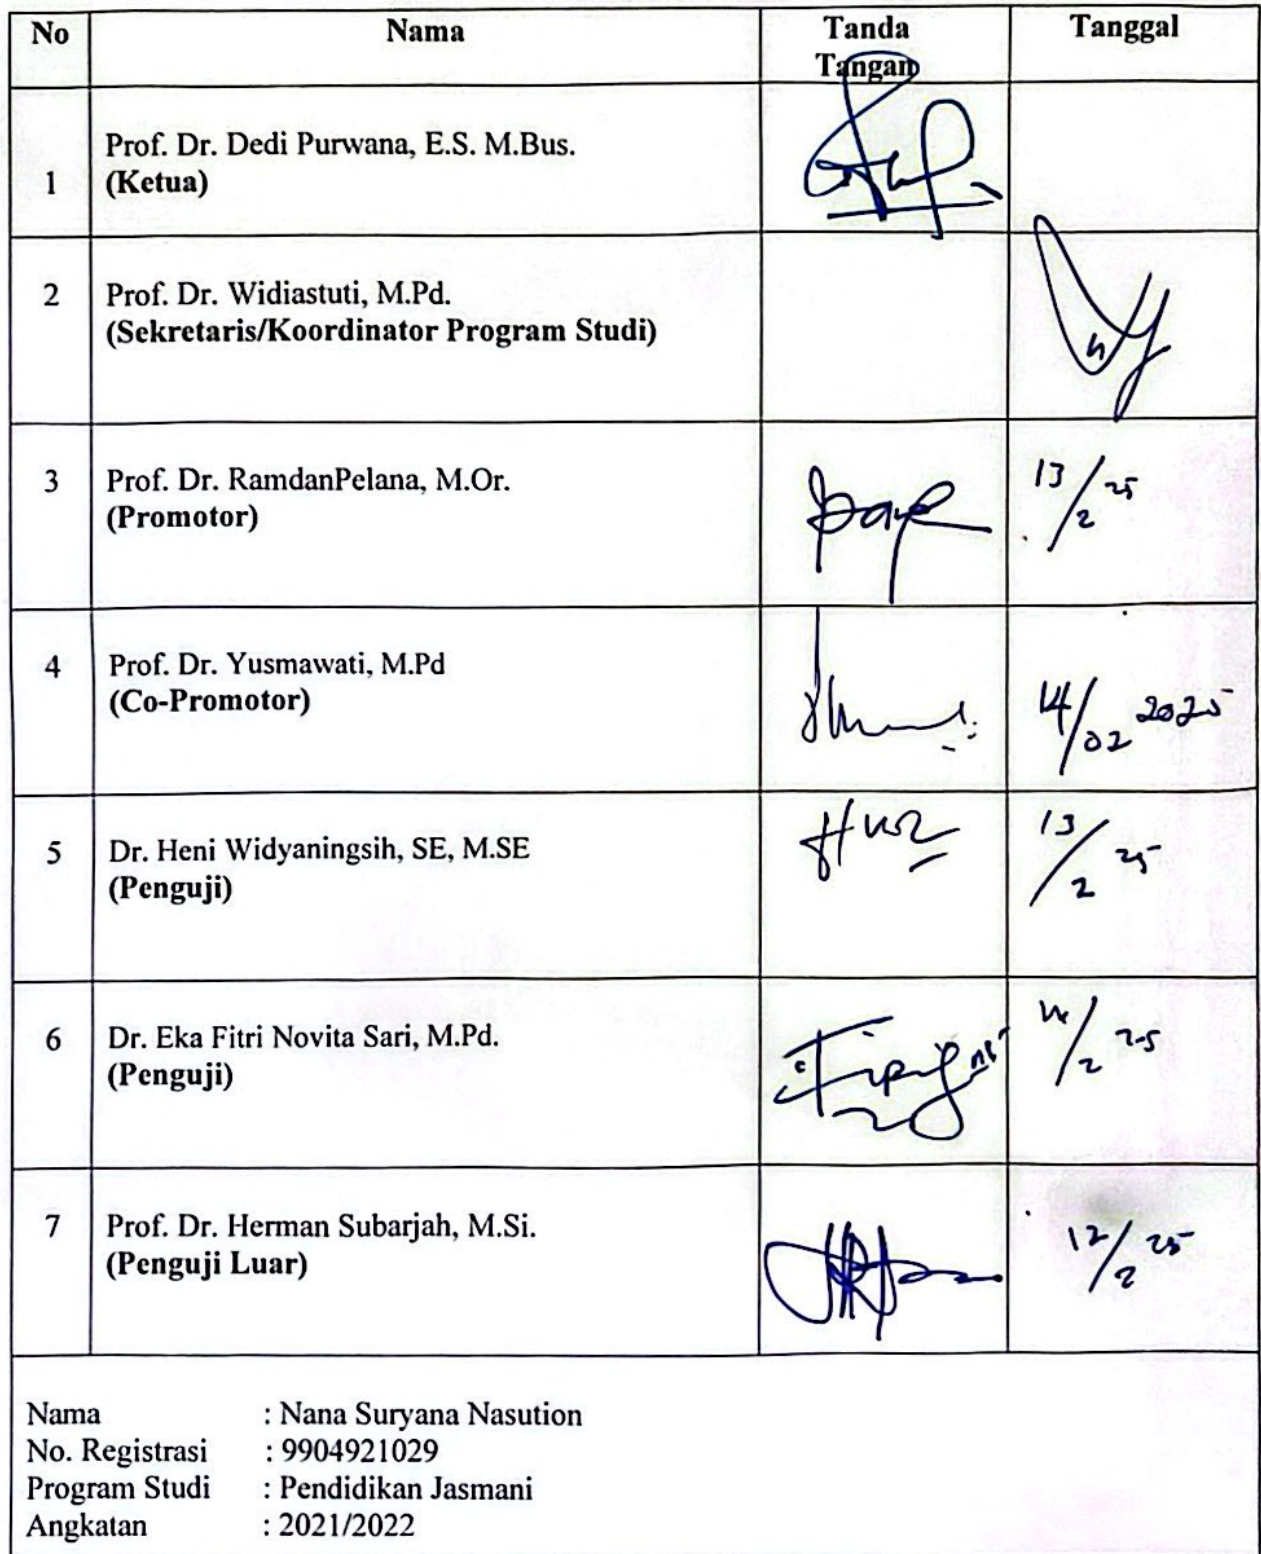 No Nama Tanda Tangan Tanggal
1 Prof. Dr. Dedi Purwana, E.S. M.Bus.
(Ketua)
2 Prof. Dr. Widiastuti, M.Pd.
(Sekretaris/Koordinator Program Studi)
3 Prof. Dr. RamdanPelana, M.Or. 13/2 25
(Promotor)
4 Prof. Dr. Yusmawati, M.Pd 14/02 2025
(Co-Promotor)
5 Dr. Heni Widyaningsih, SE, M.SE 13/2 25
(Penguji)
6 Dr. Eka Fitri Novita Sari, M.Pd. 14/2 25
(Penguji)
7 Prof. Dr. Herman Subarjah, M.Si. 12/2 25
(Penguji Luar)
Nama : Nana Suryana Nasution
No. Registrasi : 9904921029
Program Studi : Pendidikan Jasmani
Angkatan : 2021/2022